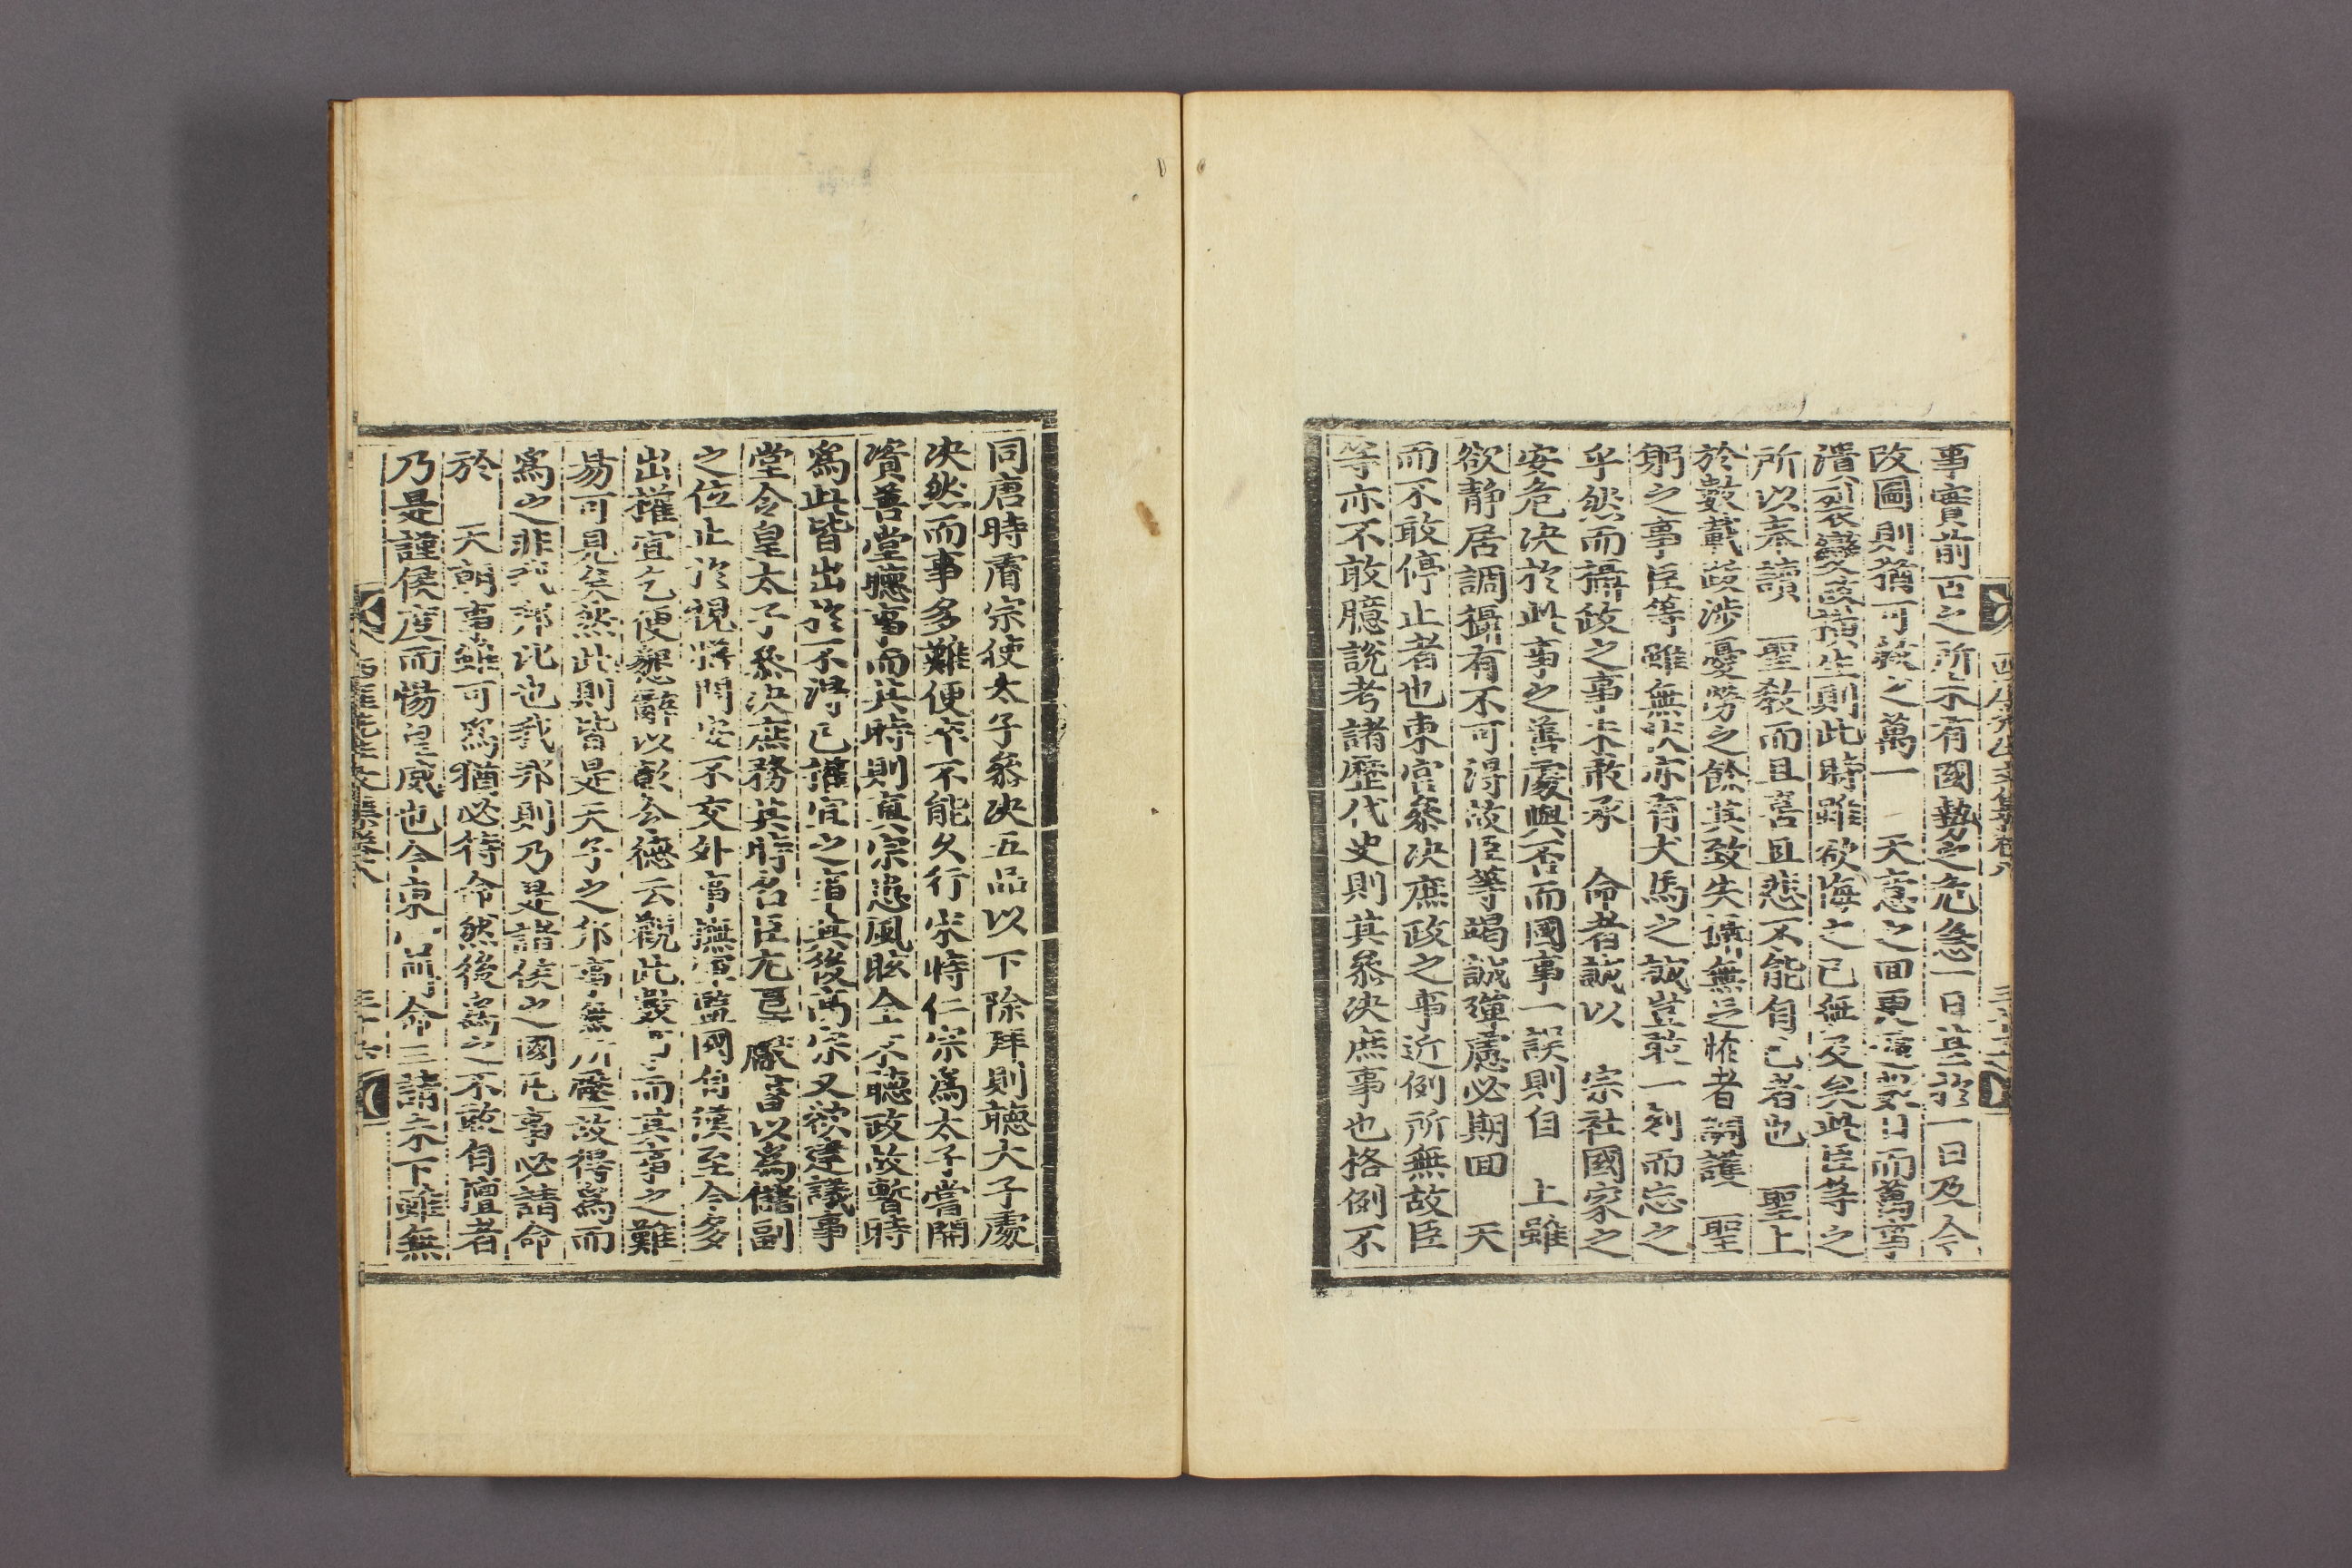 事實前古之所未有國勢之危急一日甚於一日及今
改圖則猶可救之萬一 天意之回更遲數日而萬事
潰裂變故橫生則此時雖欲悔之已無及矣此臣等之
所以奉讀 聖敎而且喜且悲不能自已者也 聖上
於數載跋涉憂勞之餘其致失攝無足怪者調護 聖
躬之事臣等雖無狀亦有犬馬之誠豈敢一刻而忘之
乎然而攝政之事未敢承 命者誠以 宗社國家之
安危决於此事之善處與否而國事一誤則自 上雖
欲靜居調攝有不可得故臣等竭誠殫慮必期回 天
而不敢停止者也東宮叅决庶政之事近例所無故臣
等亦不敢臆說考諸歷代史則其叅决庶事也格例不
西厓先生文集卷八
同唐時睿宗使太子叅决五品以下除拜則聽大子處
决然而事多難便卒不能久行宋時仁宗爲太子嘗開
資善堂聽事而其時則眞宗患風眩全不聽政故暫時
爲此皆出於不得已權宜之事其後高宗又欲建議事
堂令皇太子叅决庶務其時名臣尤𢎥嚴畜以爲儲副
之位止於視膳問安不交外事撫軍監國自漢至今多
出權宜乞便懇辭以彰令德云觀此數事而其事之難
易可見矣然此則皆是天子之邦事無所礙故得爲而
爲之非我邦比也我邦則乃是諸侯之國凡事必請命
於 天朝事雖可爲猶必待命然後爲之不敢自擅者
乃是謹侯度而惕皇威也今東宮 冊命三請未下雖無
西厓先生文集卷八